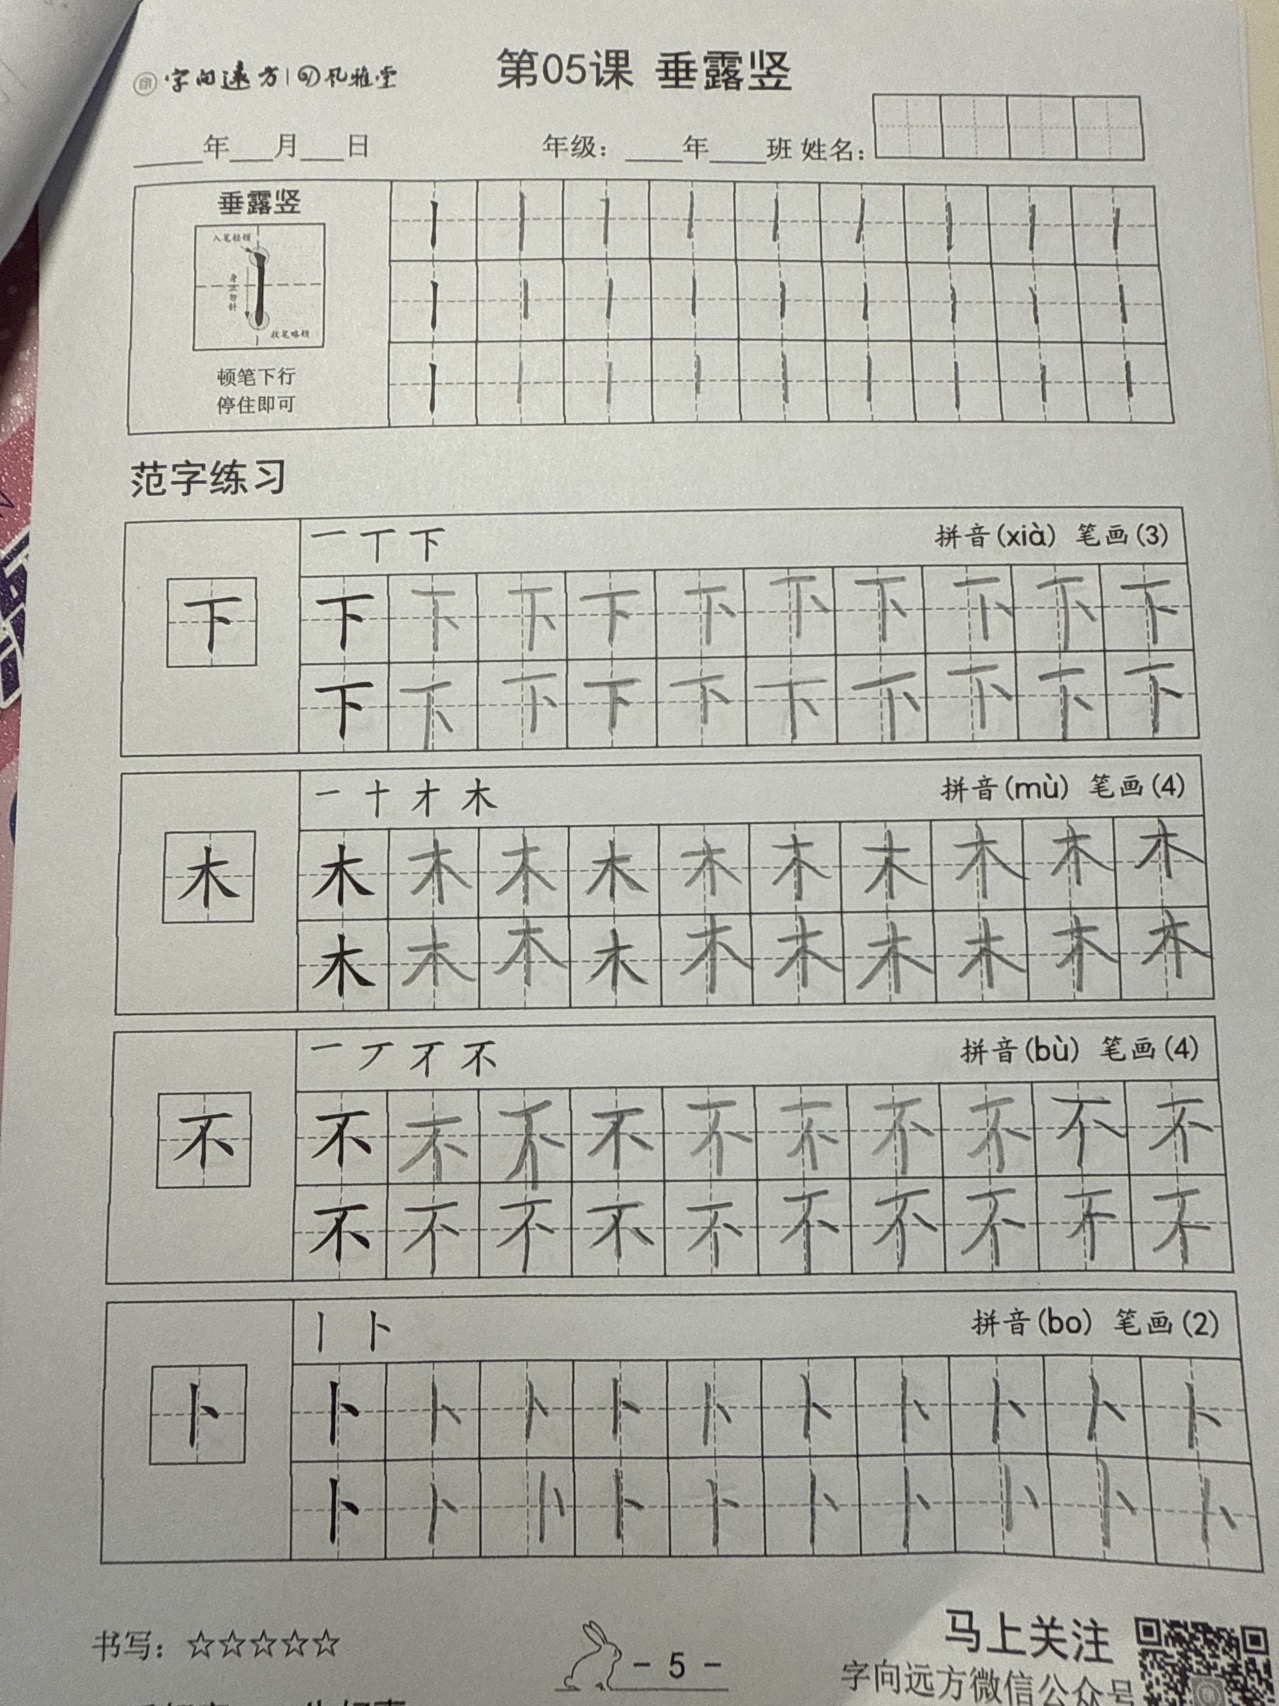 字向远方 | 风雅堂
第05课 垂露竖
____年___月___日 年级：____年____班 姓名：
垂露竖
入笔轻顿
身正勿斜
收笔略顿
顿笔下行
停住即可
范字练习
一 丅 下 拼音(xià) 笔画(3)
下 下 下 下 下 下 下 下 下 下 下
下 下 下 下 下 下 下 下 下 下
一 十 才 木 拼音(mù) 笔画(4)
木 木 木 木 木 木 木 木 木 木 木
木 木 木 木 木 木 木 木 木 木
一 丆 不 拼音(bù) 笔画(4)
不 不 不 不 不 不 不 不 不 不 不
不 不 不 不 不 不 不 不 不 不
丨 卜 拼音(bo) 笔画(2)
卜 卜 卜 卜 卜 卜 卜 卜 卜 卜 卜
卜 卜 卜 卜 卜 卜 卜 卜 卜 卜
书写：☆☆☆☆☆
- 5 -
马上关注
字向远方微信公众号